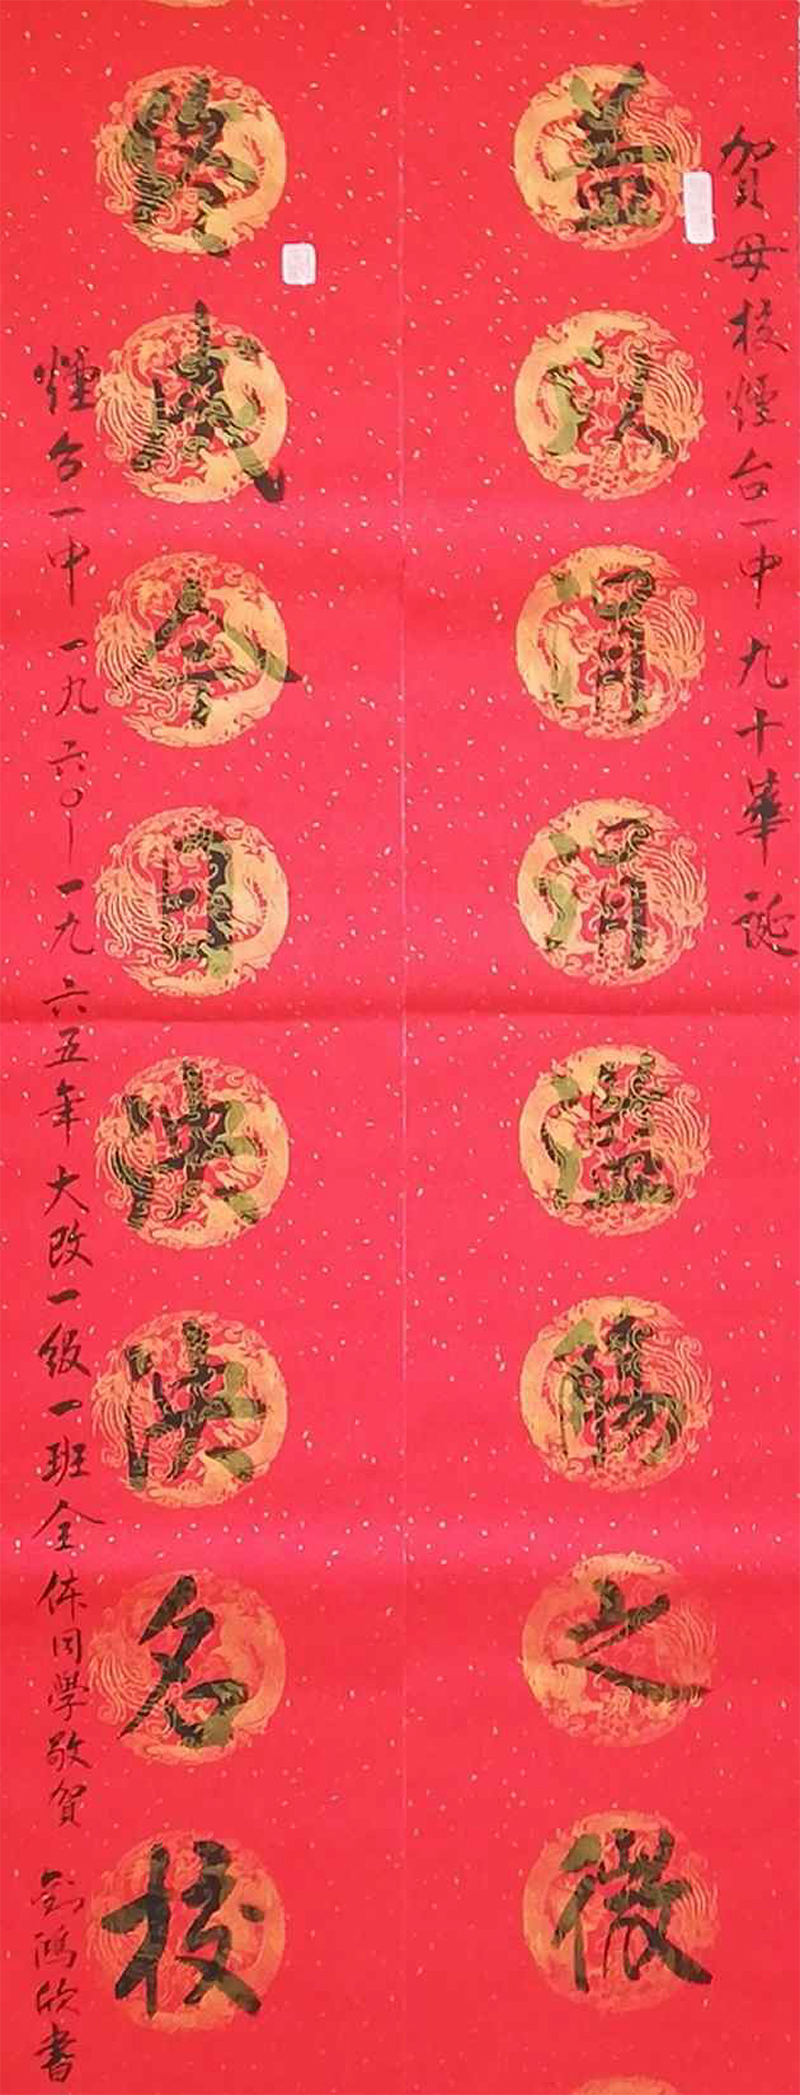 賀母校煙台一中九十華诞
盖以涓涓滥觴之微
终成今日泱泱名校
煙台一中一九六〇—一九六五年大改一级一班全体同學敬賀 刘鴻欣書